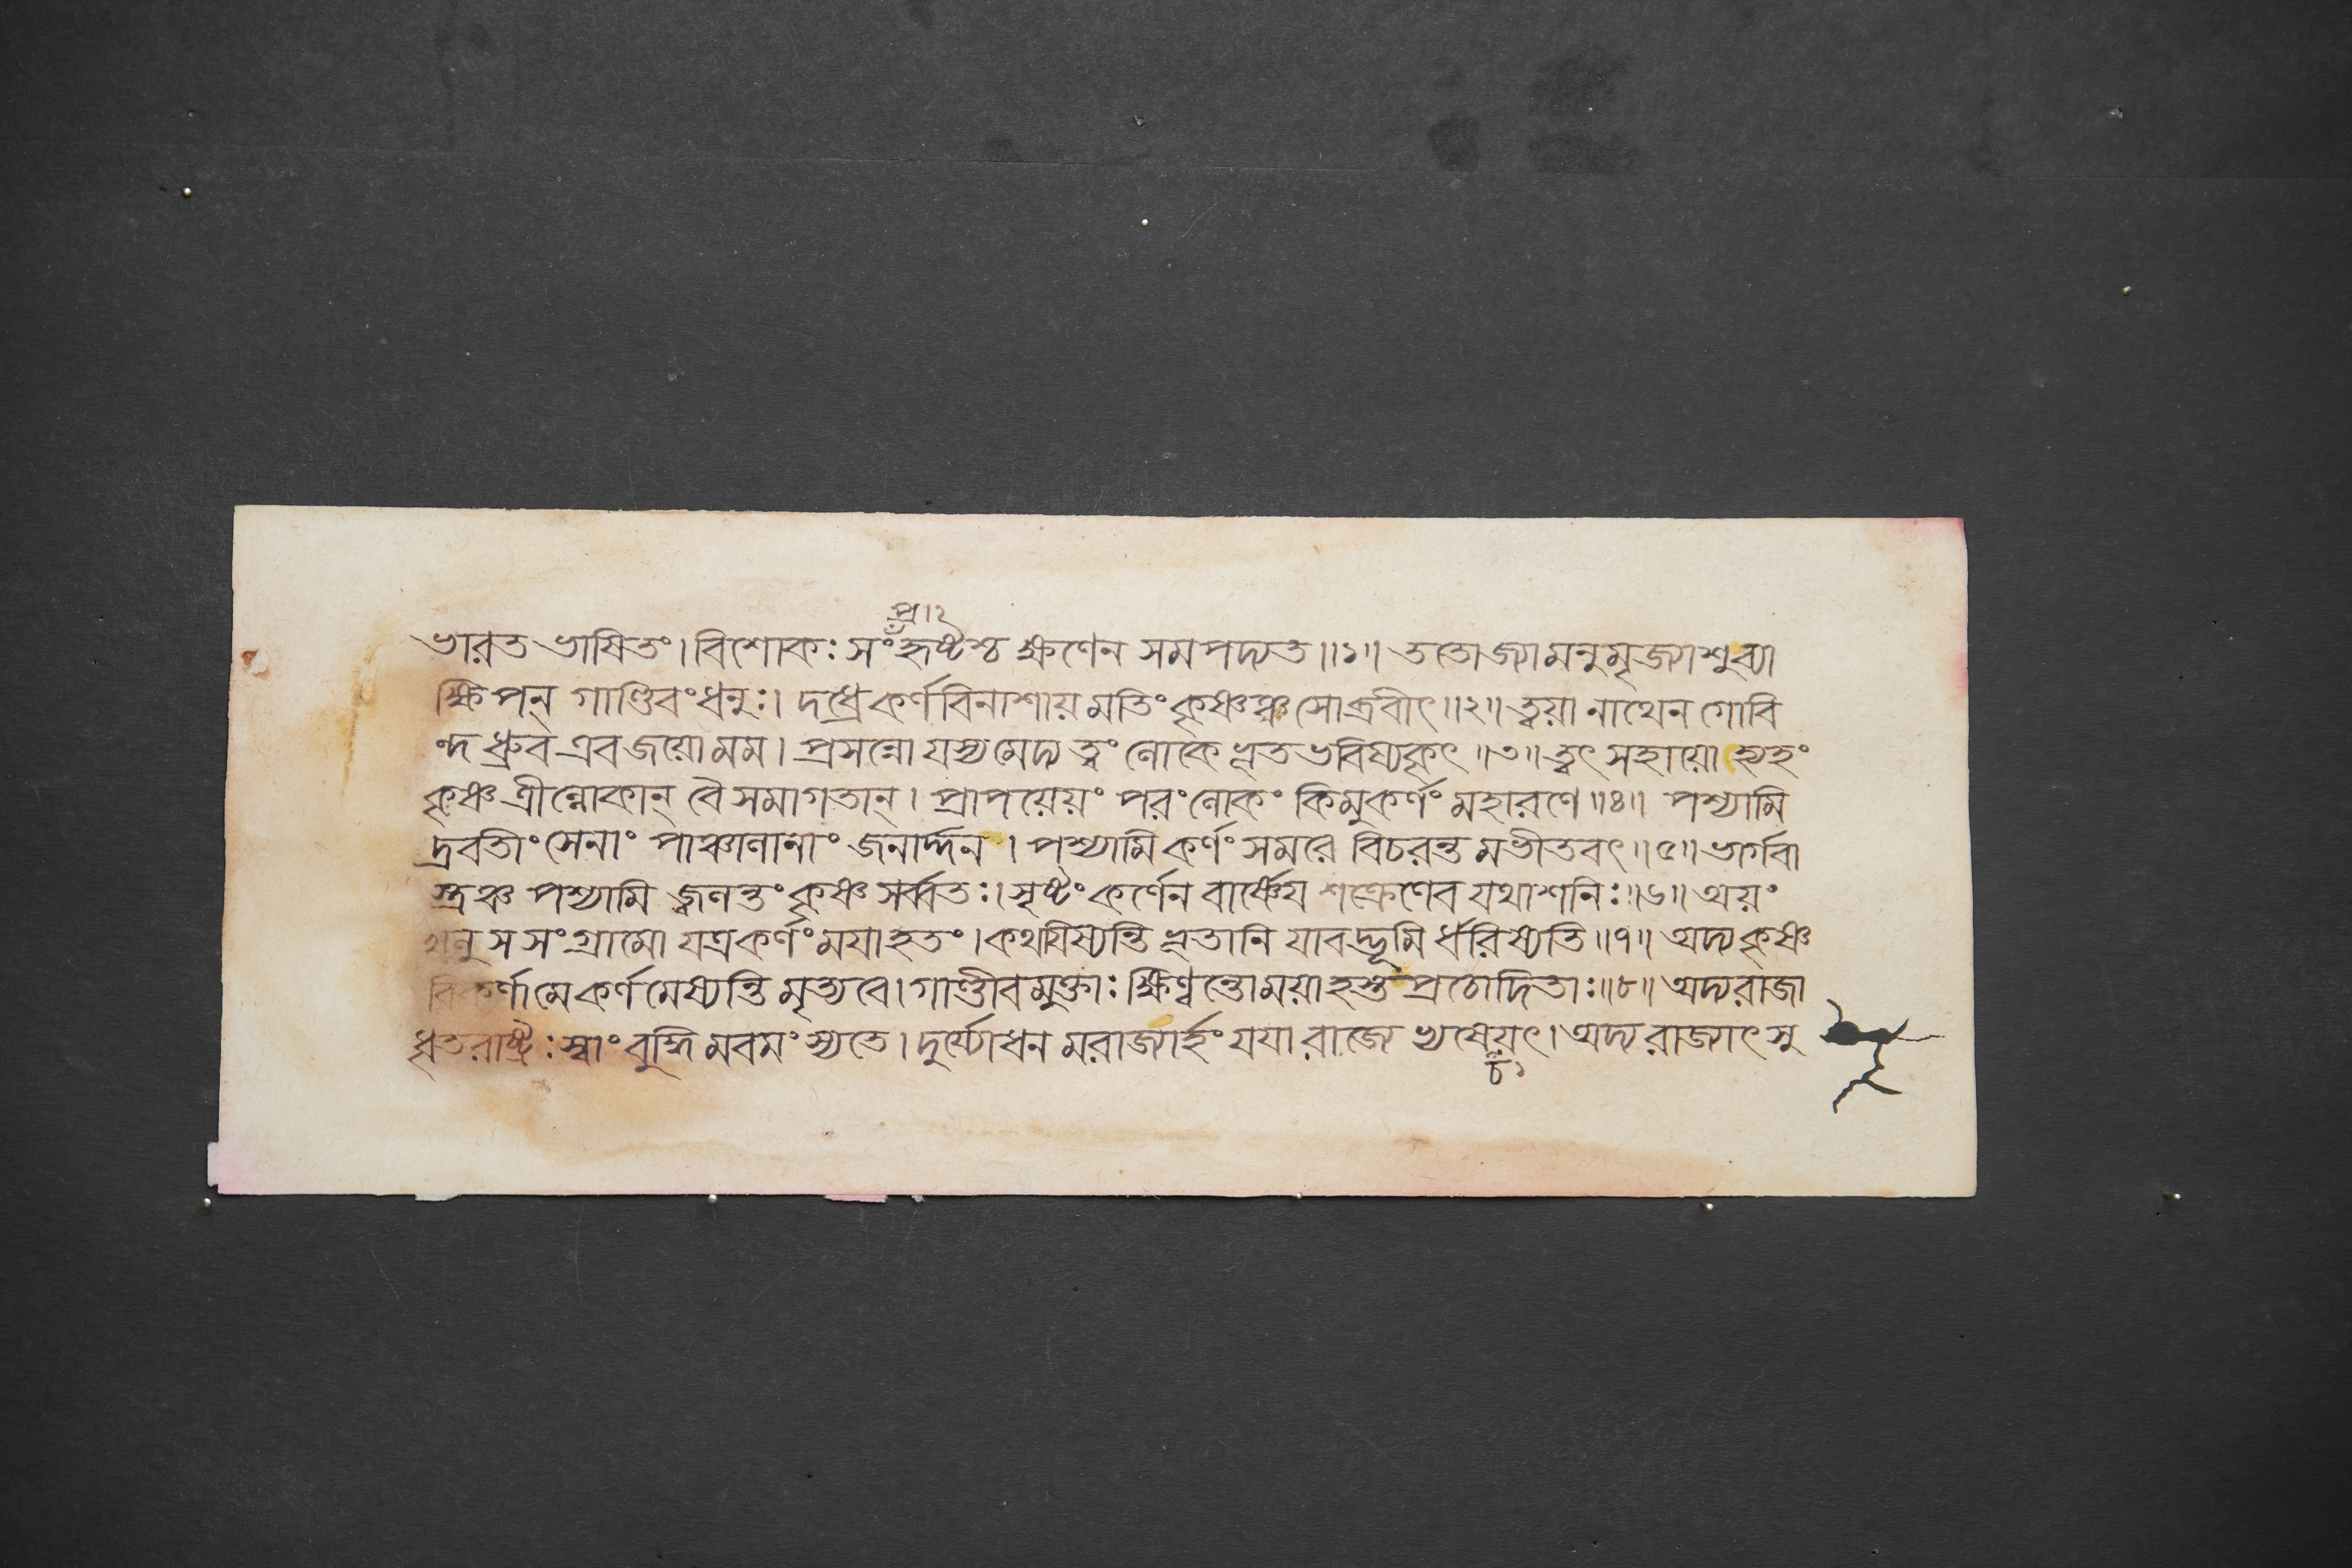 প্র।২
ভারত ভাষিতং। বিশোকঃ সংহৃষ্টশ্চ ক্ষণেন সমপদ্যত॥১॥ ততো জ্যামনুমৃজ্যাশু ব্যা
ক্ষিপন্ গাণ্ডিবং ধনুঃ। দধ্রে কর্ণবিনাশায় মতিং কৃষ্ণঞ্চ সোব্রবীৎ॥২॥ ত্বয়া নাথেন গোবি
ন্দ ধ্রুব এব জয়ো মম। প্রসন্নো যস্য মেদ্য ত্বং লোকে ভূতভবিষ্যকৃৎ॥৩॥ ত্বৎ সহায়ো হ্যহং
কৃষ্ণ ত্রীল্লোকান্ বৈ সমাগতান্। প্রাপয়েয়ং পরং লোকং কিমু কর্ণং মহারণে॥৪॥ পশ্যামি
দ্রবতীং সেনাং পাঞ্চালানাং জনার্দ্দন। পশ্যামি কর্ণং সমরে বিচরন্তমভীতবৎ॥৫॥ ভার্গবা
স্ত্রঞ্চ পশ্যামি জ্বলন্তং কৃষ্ণ সর্ব্বতঃ। সৃষ্টং কর্ণেন বার্ষ্ণেয় শক্রেণেব যথাশনিঃ॥৬॥ অয়ং
খলু স সংগ্রামো যত্র কর্ণং ময়া হতং। কথযিষ্যন্তি ভূতানি যাবদ্ভূমি র্ধরিষ্যেতি॥৭॥ অদ্য কৃষ্ণ
বিকর্ণা মে কর্ণমেষ্যন্তি মৃত্যবে। গাণ্ডীবমুক্তাঃ ক্ষিণ্বন্তো ময়া হস্তপ্রচোদিতাঃ॥৮॥ অদ্য রাজা
ধৃতরাষ্ট্রঃ স্বাং বুদ্ধিমবমংস্যতে। দুর্য্যোধনমরাজ্যার্হং যয়া রাজ্যে ভ্যষেয়ৎ। অদ্য রাজ্যাৎ সু
চ১